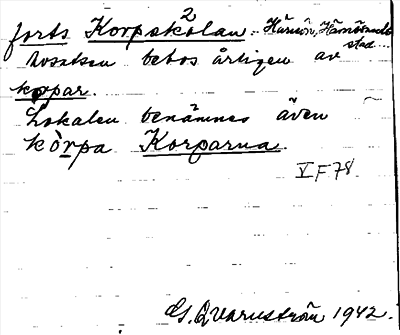 2
forts Korpskolan. Härnön, Härnösands stad
bosatsen bebos årligen av
korpar.
Lokalen benämnes även
kòrpa Korparna.
V F 78.
G. Qvarnström 1942.